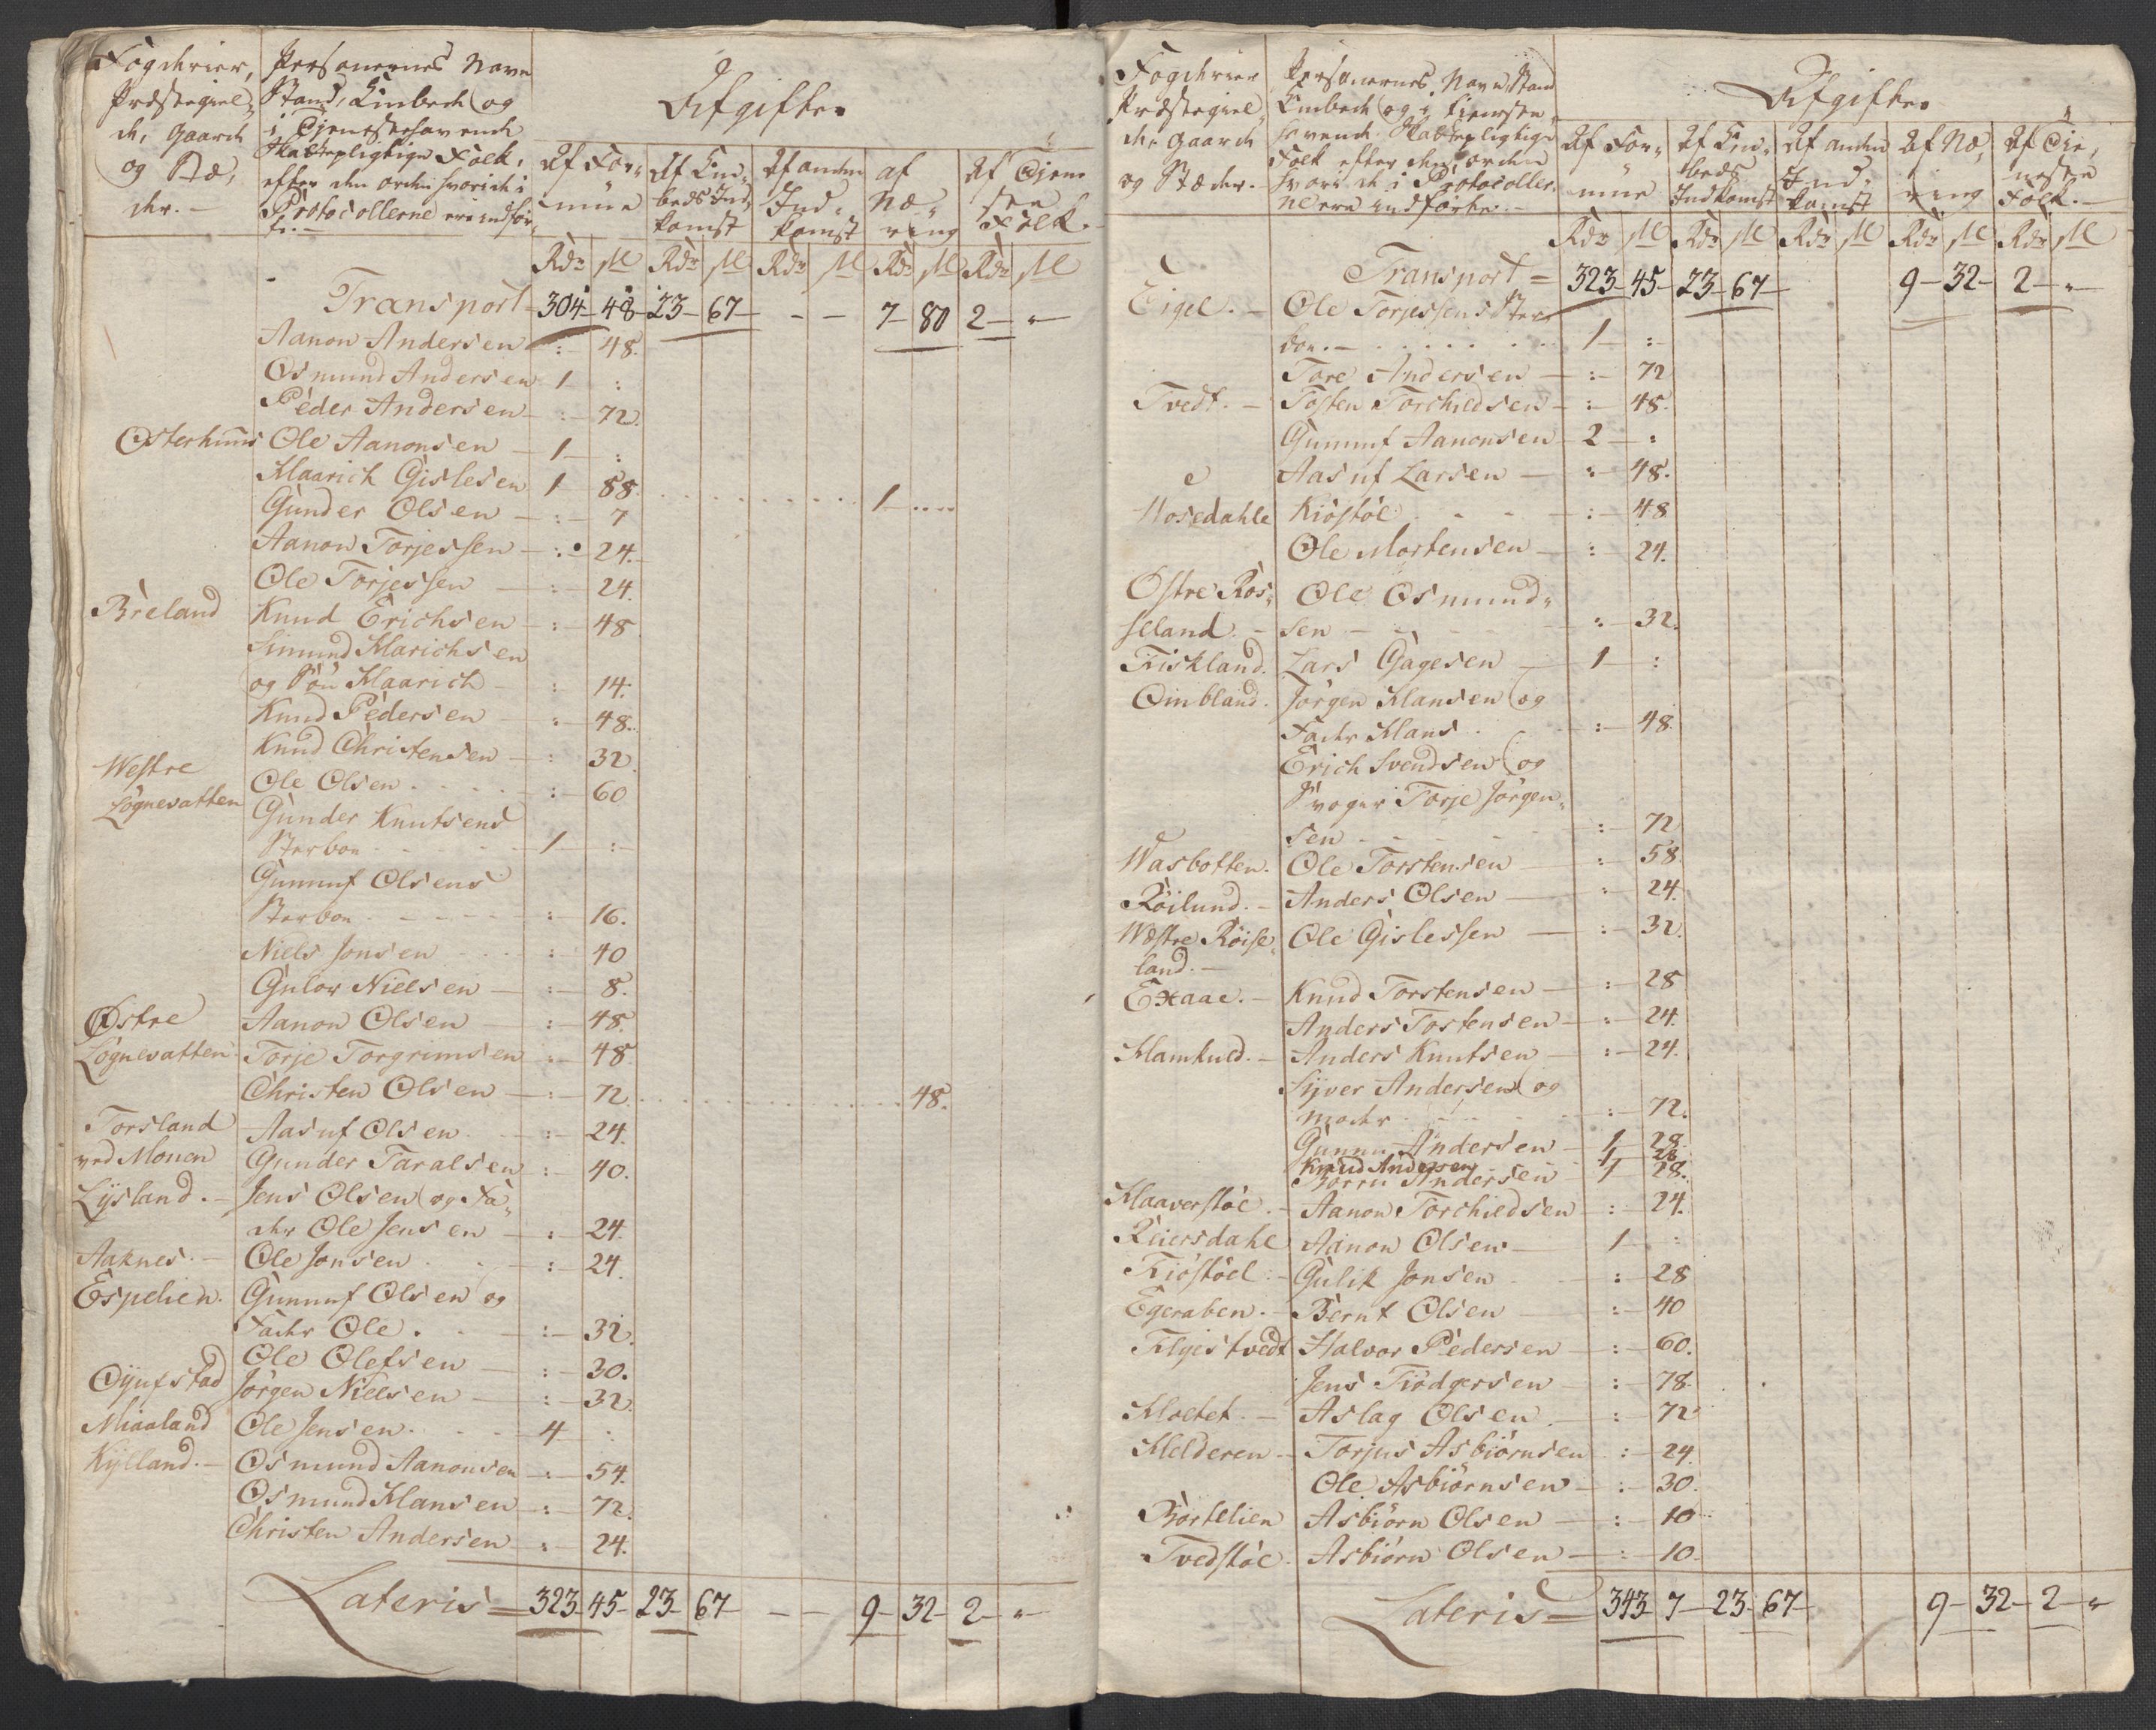 Fogderier,
Præstegiel-
de, Gaarde
og Stæ-
der. -
Personernes Navn
Stand, Embede og
i Tjenestehavende
Skattepligtige Folk,
efter den orden hvori de i
Protocollerne ere indför-
te. -
Afgifter
Af For-
mue
Af Em-
beds Ind-
komst
Af anden
Ind-
komst
af
Næ-
ring
Af Tjene
ste
Folk.
Rdr ſk Rdr ſk Rdr ſk Rdr ſk Rdr ſk
Transport = 304 - 48 - 23 - 67 - - - 7 - 80 2 - "
Aanon Andersen : - 48.
Osmund Andersen 1 :
Peder Andersen - : - 72.
Osterhuus Ole Aanonsen - 1 - :
Klaarich Gislesen 1 - 88. . . . . . . . . . 1 - . . . .
Gunder Olsen - : - 7
Aanon Torjessen - : - 24.
Ole Torjessen - : - 24.
Breland Knud Erichsen - : - 48
Simund Klarichsen
og Sön Klaarich - : 14.
Knud Pedersen - : - 48.
Knud Christensen - : 32
Westre Ole Olsen . . . . - : - 60
Lögnevatten Gunder Knutsens
Sterboe - - - - - 1 - : -
Gunnuf Olsens
Sterboe . - - - - : - 16.
Niels Jonsen . . . . : - 40
Gulov Nielsen - : - 8.
Østre Aanon Olsen - : - 48.
Lögnevatten Torje Torgrimsen : - 48
Christen Olsen - : - 72 . . . . . . . . . . 48.
Torsland Aasuf Olsen . - : - 24.
ved Monen Gunder Taralsen : - 40.
Lijsland. - Jens Olsen og Fa-
der Ole Jensen - : - 24.
Aaknes. - Ole Jonsen . . - : - 24.
Espelien. Gunnuf Olsen og
Fader Ole . . - : - 32.
Ole Olefsen - : - 30.
Oÿufstad Jörgen Nielsen - : - 32.
Miaaland Ole Jensen . . . - 4 - :
Kÿlland. - Osmund Aanonsen - : - 54.
Osmund Klansen - : - 72.
Christen Andersen - : - 24.
Lateris = 323 - 45 - 23 - 67 - - - 9 - 32 - 2 - "
Fogderier
Præstegiel-
de, Gaarde
og Stæder.
Personernes Navn, Stand
Embede og i tieneste-
havende Skattepligtige
Folk efter den orden
hvori de i Protocoller-
ne ere indförte. -
Afgifter
Af For-
mue
Af Em-
beds
Indkomst
Af anden
Ind-
komst
Af Næ-
ring
Af Tie-
neste
Folk. -
Rdr ſk Rdr ſk Rdr ſk Rdr ſk Rdr ſk
Transport = 323 - 45 - 23 - 67 - 9 - 32 - 2 - "
Eigel. - Ole Torjessens Ster-
boe. - . . . . . . . 1 - :
Tore Andersen - : - 72
Tvedt. - Tosten Torchildsen - : - 48.
Gunnuf Aanonsen - 2 - :
Aasuf Larsen - : - 48.
Mosedahle Kiöstöl . - - - : - 48
Ole Mortensen - : 24.
Ostre Ros- Ole Osmund-
seland. - sen - - - - : - 32.
Fiskland. Lars Gagesen - 1 - :
Oinbland. Jörgen Klansen og
Fader Klans . . : - 48.
Erich Svendsen og
Svoger Torje Jörgen-
sen - - - - - : - 72
Wasbotten. Ole Torstensen - : - 58.
Röilund. - Anders Olsen - : - 24.
Westre Röise- Ole Gislessen - : - 32.
land. -
Exaae. - Knud Torstensen - : - 28
Anders Tostensen - : - 24.
Klamkued. - Anders Knutsen - : - 24.
Sijver Andersen og
Moder . - . - . - : - 72.
Gunnu Andersen - 1 - 28.
Knud Andersen 1 28
Borru Andersen - 1 - 28.
Klaaverstöe. - Aanon Torchildsen - : - 24.
Reiersdahl Aanon Olsen - 1 - :
Fiöstöel. - Gulik Jonsen - : - 28
Egeraben. - Bernt Olsen - : - 40
Flyestvedt Halvor Pedersen - : - 60.
Jens Tiödgersen - : - 78.
Kloetet. - Aslag Olsen. - : - 72
Kelderen - Torjus Asbiörnsen : - 24.
Ole Asbiörnsen - : - 30.
Börtelien Asbiörn Olsen - : - 10
Tvedstöe. Asbiörn Olsen - : - 10.
Lateris = 343 - 7 - 23 - 67 - 9 - 32 - 2 - "